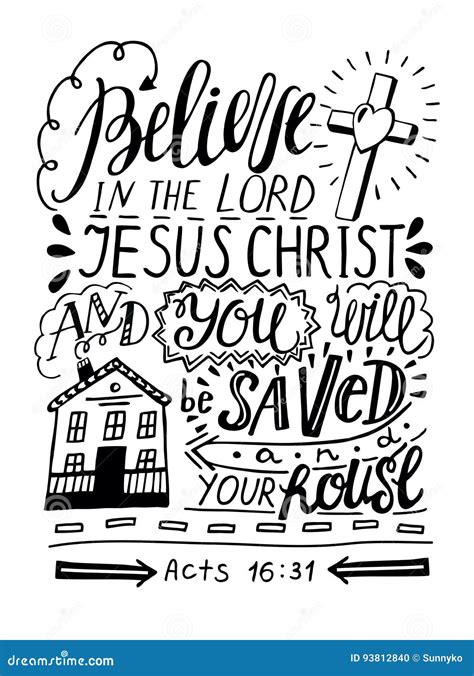 Believe
IN THE LORD
JESUS CHRIST
AND YOU will
be SAVED
and
YOUR house
Acts 16:31
dreamstime.com
ID 93812840 © Sunnyko